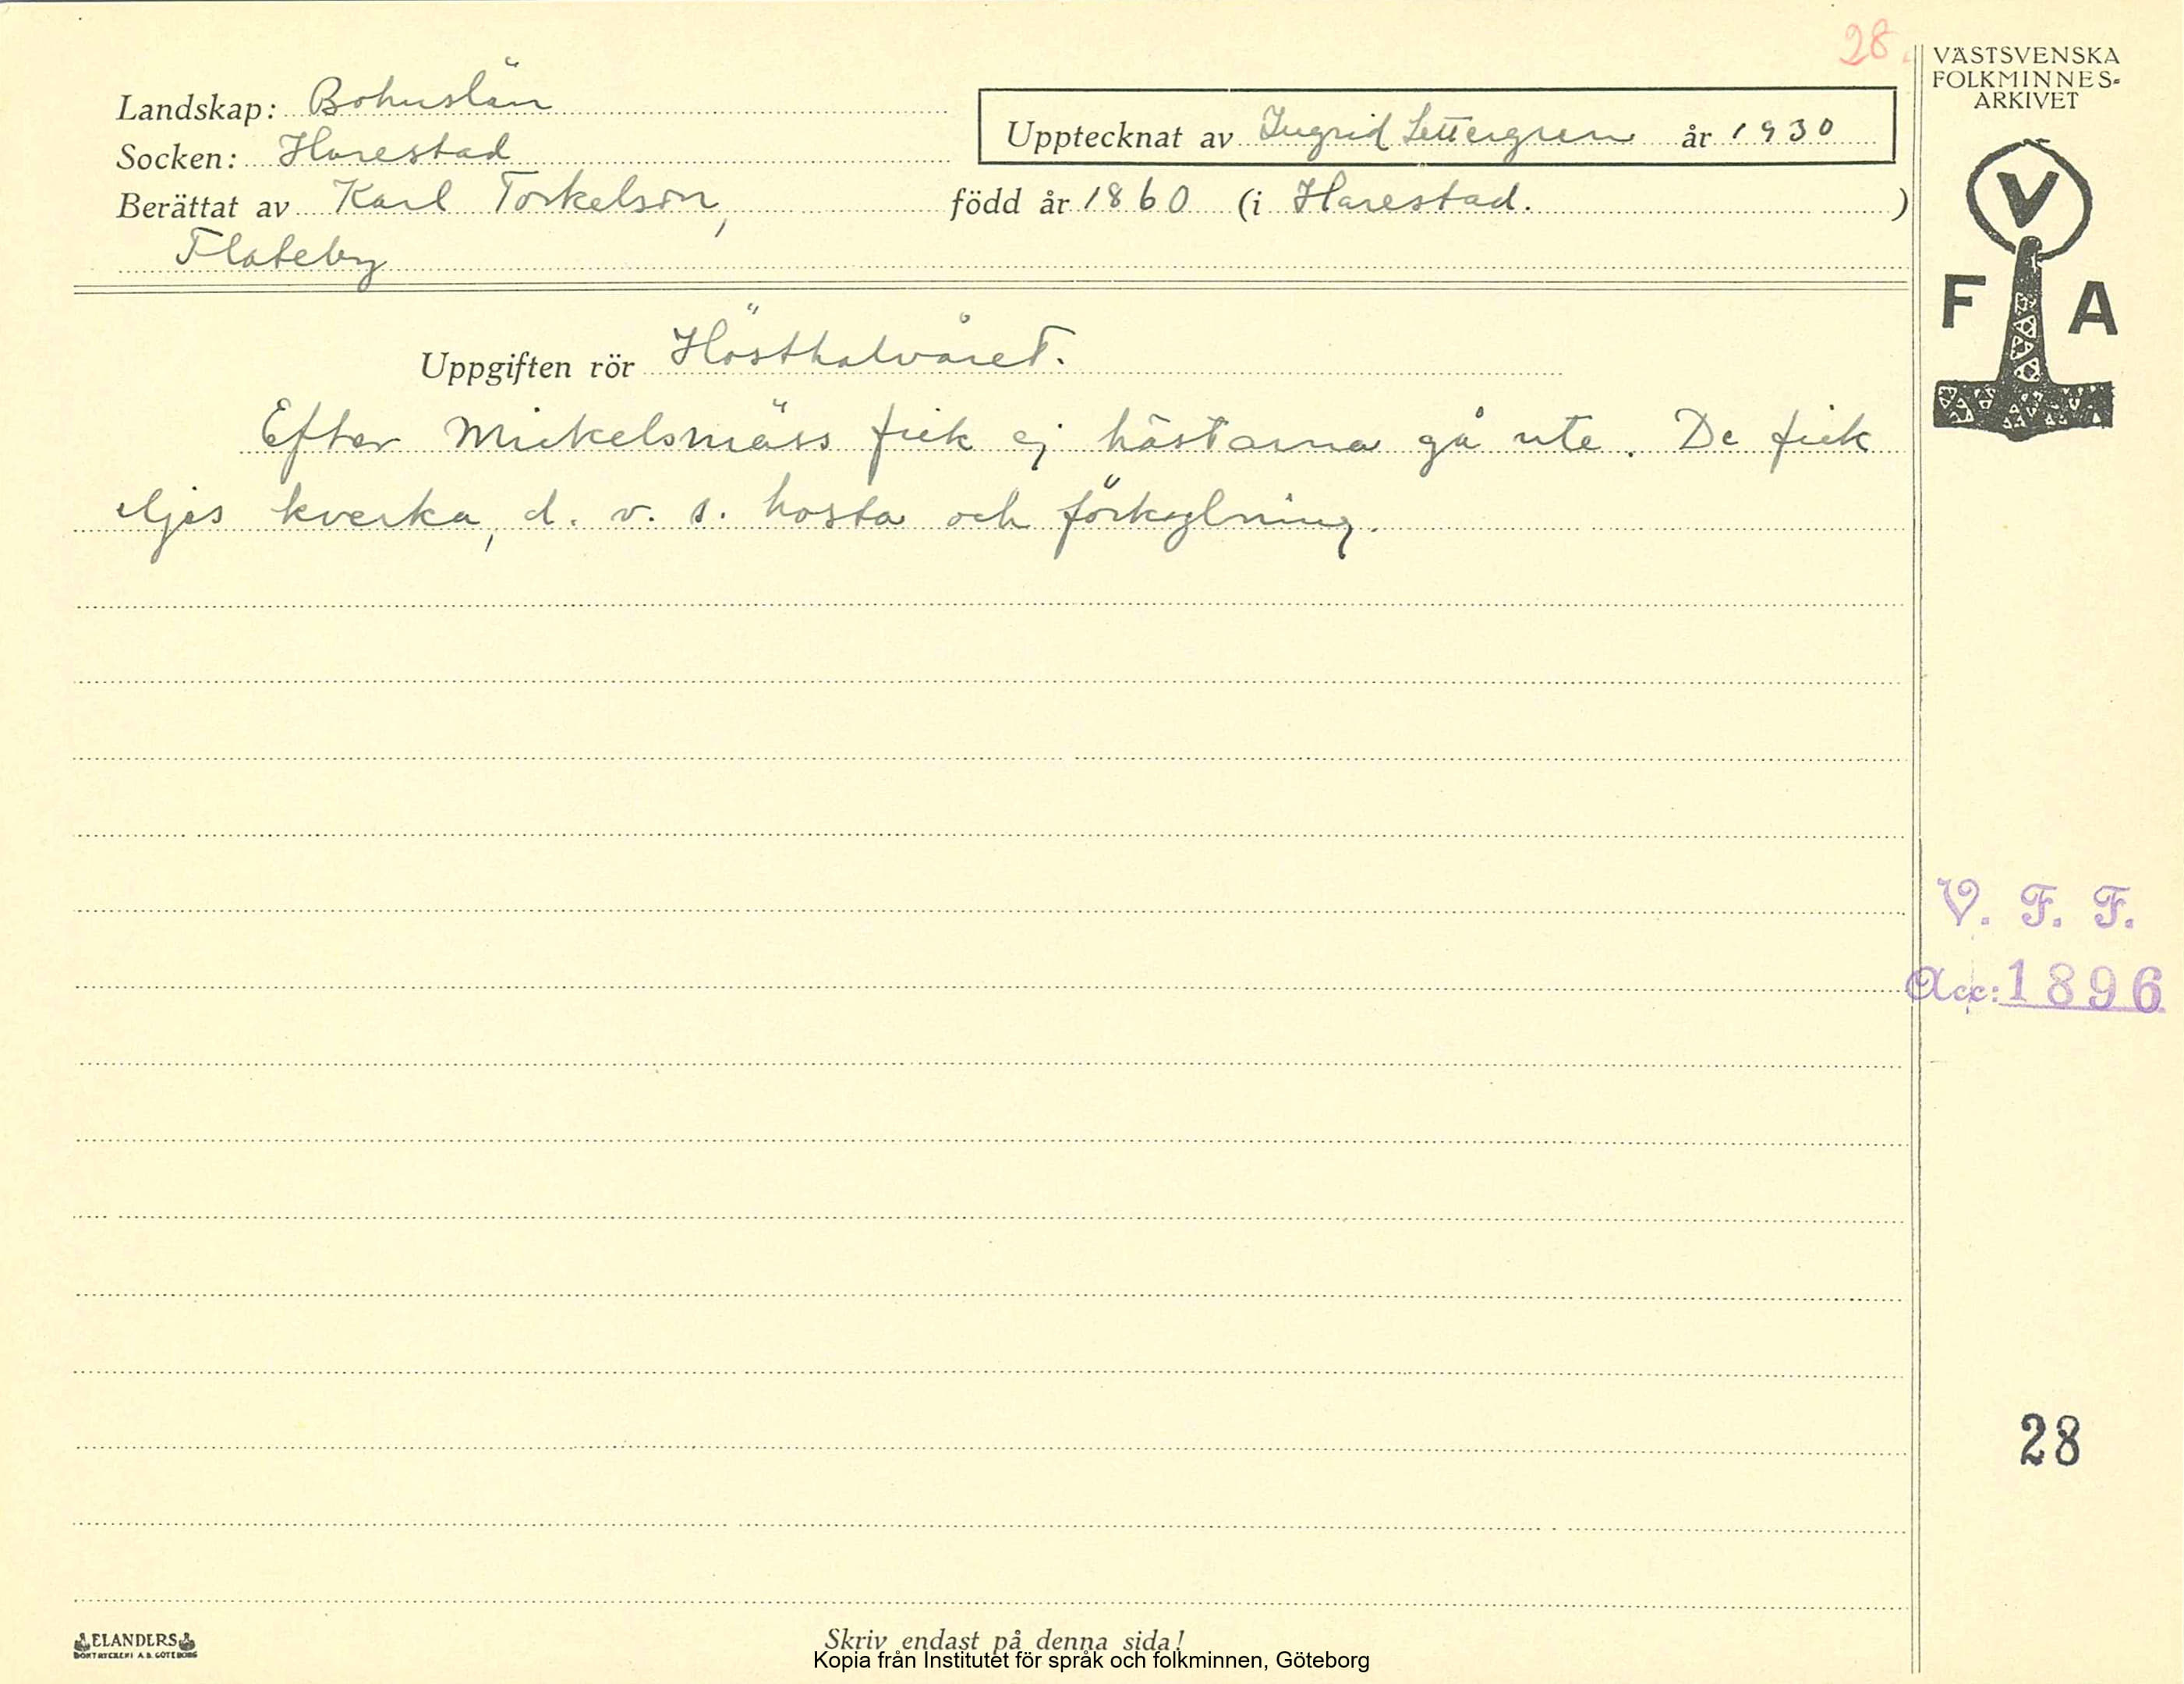 28.
VÄSTSVENSKA
FOLKMINNES-
ARKIVET
Landskap: Bohuslän
Upptecknat av Ingrid Settergren år 1930
Socken: Harestad
Berättat av Karl Torkelson, född år 1860 (i Harestad.)
Flateby
V
F A
Uppgiften rör Hösthalvåret.
Efter Mickelsmäss fick ej hästarna gå ute. De fick
eljes kverka, d. v. s. hosta och förkylning.
V. F. F.
Acc: 1896
28
ELANDERS
BOKTRYCKERI A.B. GÖTEBORG
Skriv endast på denna sida!
Kopia från Institutet för språk och folkminnen, Göteborg